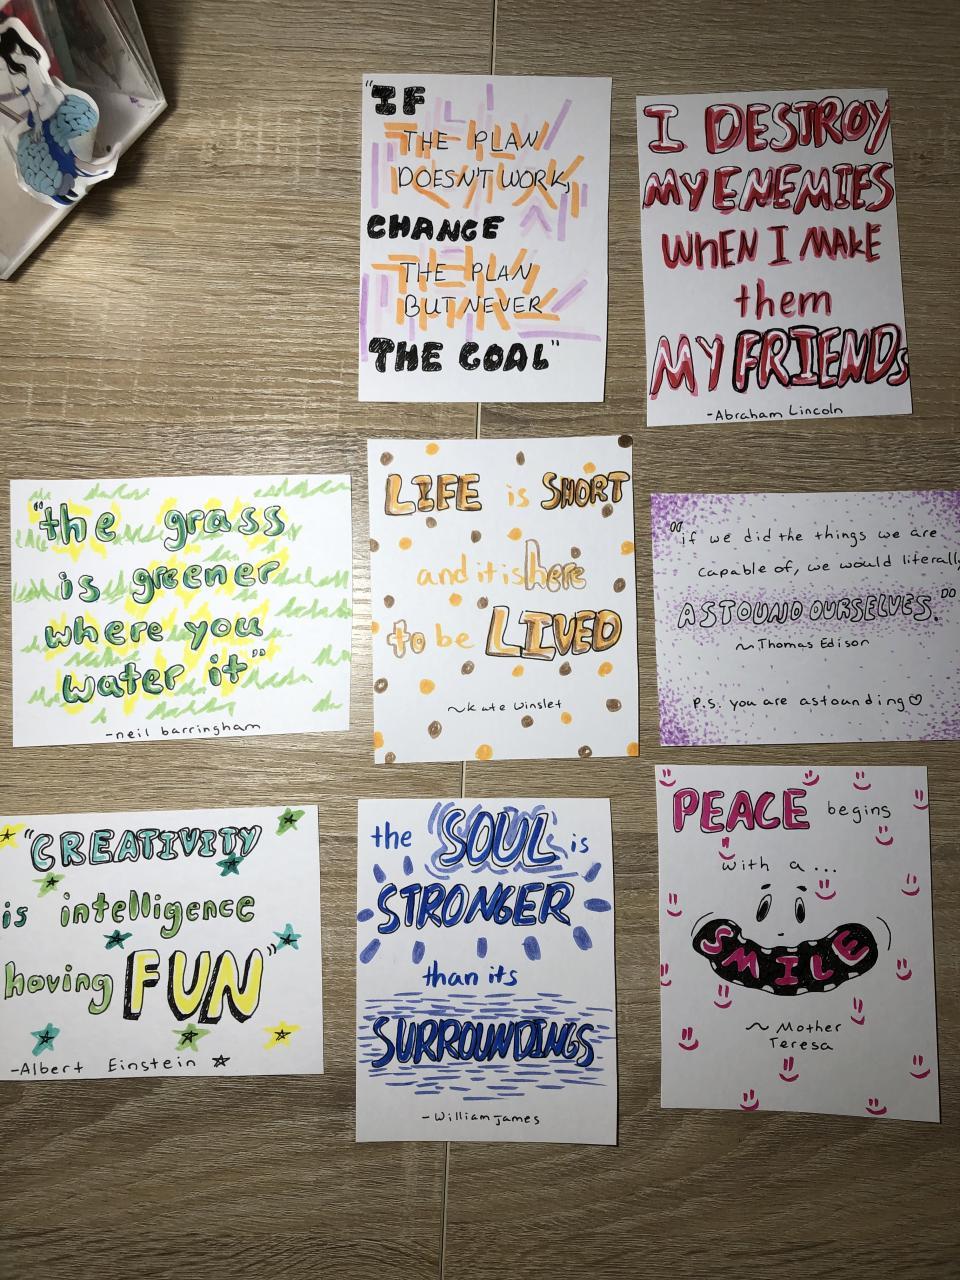 "IF
THE PLAN
DOESN'T WORK,
CHANGE
THE PLAN
BUT NEVER
THE GOAL"
I DESTROY
MY ENEMIES
WHEN I MAKE
them
MY FRIENDS
-Abraham Lincoln
"the grass
is greener
where you
water it"
-neil barringham
LIFE is SHORT
and it is here
to be LIVED
~Kate Winslet
"if we did the things we are
capable of, we would literally
ASTOUND OURSELVES."
~Thomas Edison
P.S. you are astounding♡
"CREATIVITY
is intelligence
having FUN"
-Albert Einstein ☆
the SOUL is
STRONGER
than its
SURROUNDINGS
-William James
PEACE begins
with a...
SMILE
~ Mother
Teresa